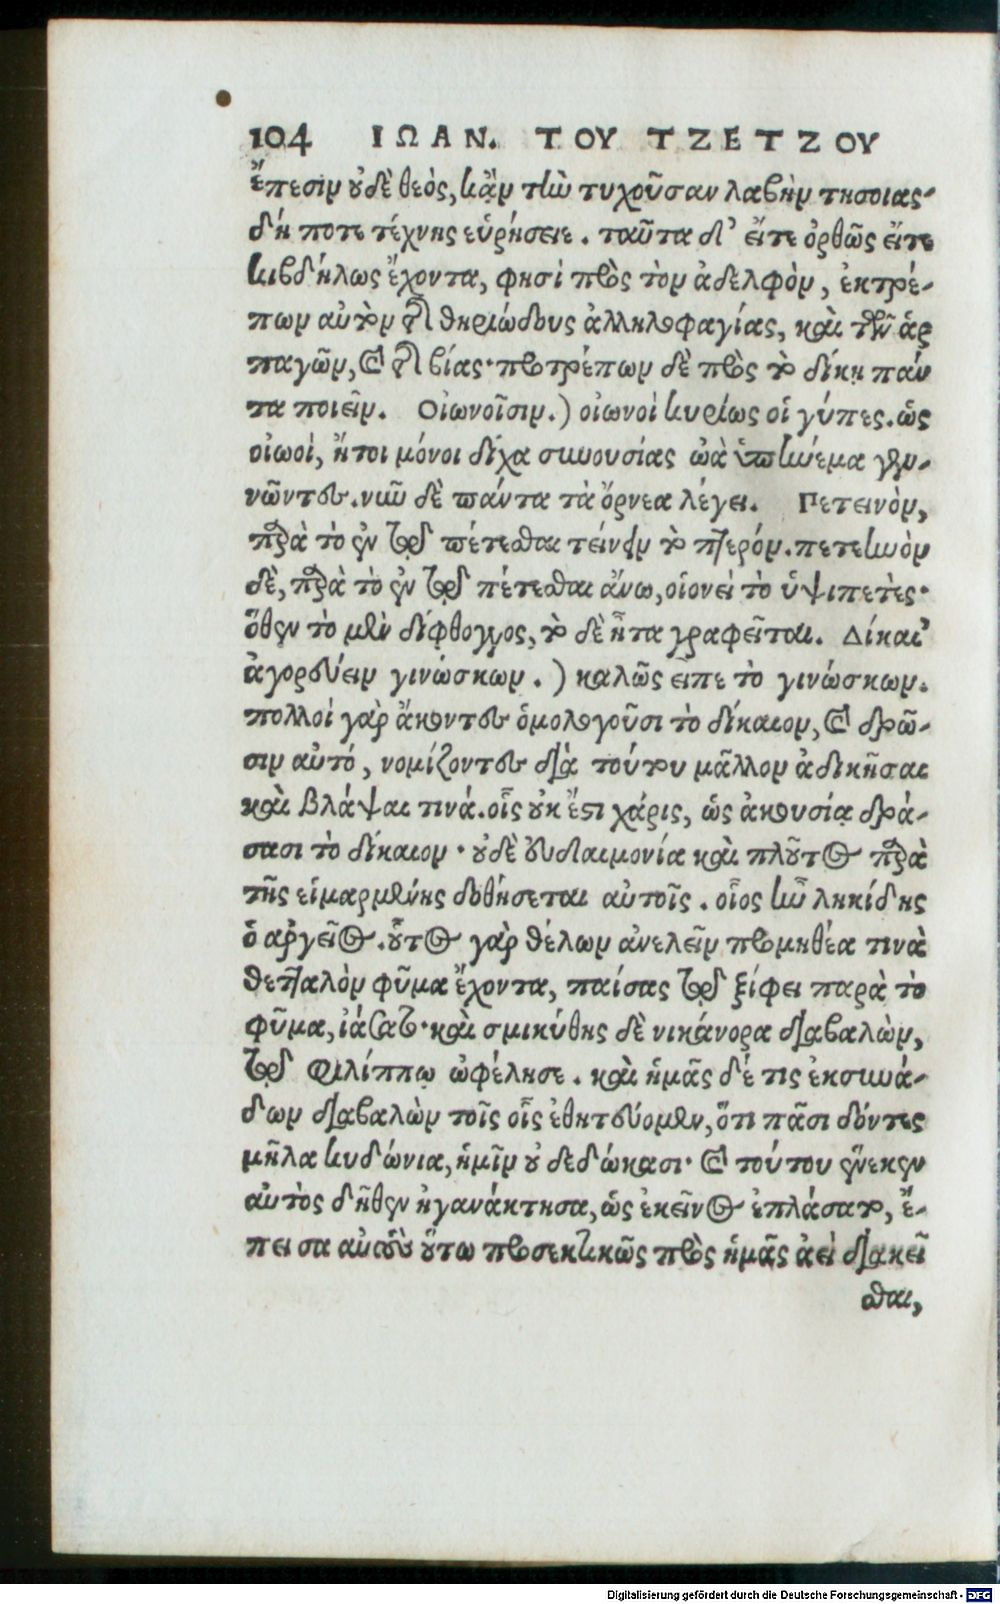 104 ΙΩΑΝ. ΤΟΥ ΤΖΕΤΖΟΥ
ἔπεσιν οὐδὲ θεὸς, κἂν τὴν τυχοῦσαν λαβὴν τῆς οἵας-
δή ποτε τέχνης εὑρήσειε. ταῦτα δ’ εἴτε ὀρθῶς εἴτε
κιβδήλως ἔχοντα, φησὶ πρὸς τὸν ἀδελφὸν, ἐκτρέ-
πων αὐτὸν τῆς θηριώδους ἀλληλοφαγίας, καὶ τῶν ἁρ
παγῶν, καὶ τῆς βίας· προτρέπων δὲ πρὸς τὸ δίκῃ πάν
τα ποιεῖν. Οἰωνοῖσιν.) οἰωνοὶ κυρίως οἱ γύπες. ὡς
οἰωοὶ, ἤτοι μόνοι δίχα συνουσίας ὠὰ ὑπηνέμα γεν-
νῶντες. νῦν δὲ πάντα τὰ ὄρνεα λέγει. Πετεινὸν,
παρὰ τὸ ἐν τῷ πέτεσθαι τείνειν τὸ πτερόν. πετεηνὸν
δὲ, παρὰ τὸ ἐν τῷ πέτεσθαι ἄνω, οἱονεὶ τὸ ὑψιπετὲς·
ὅθεν τὸ μὲν δίφθογγος, τὸ δὲ ἦτα γραφεῖται. Δίκαι’
ἀγορεύειν γινώσκων.) καλῶς εἶπε τὸ γινώσκων.
πολλοὶ γὰρ ἄκοντες ὁμολογοῦσι τὸ δίκαιον, καὶ δρῶ-
σιν αὐτό, νομίζοντες διὰ τούτου μᾶλλον ἀδικῆσαι
καὶ βλάψαι τινά. οἷς οὐκ ἔστι χάρις, ὡς ἀκουσία δρά-
σασι τὸ δίκαιον· οὐδὲ εὐδαιμονία καὶ πλοῦτος παρὰ
τῆς εἱμαρμένης δοθήσεται αὐτοῖς. οἷος ἦν ληκίδης
ὁ ἀργεῖος. οὗτος γὰρ θέλων ἀνελεῖν προμηθέα τινὰ
θετταλὸν φῦμα ἔχοντα, παίσας τῷ ξίφει παρὰ τὸ
φῦμα, ἰάσατο· καὶ σμικύθης δὲ νικάνορα διαβαλὼν,
τῷ Φιλίππῳ ὠφέλησε. καὶ ἡμᾶς δέ τις ἐκ συνά-
δων διαβαλὼν τοῖς οἷς ἐθητεύομεν, ὅτι πᾶσι δόντες
μῆλα κυδώνια, ἡμῖν οὐ δεδώκασι· καὶ τούτου ἕνεκεν
αὐτὸς δῆθεν ἠγανάκτησα, ὡς ἐκεῖνος ἐπλάσατο, ἔ-
πεισα αὐτοὺς οὕτω προσεκτικῶς πρὸς ἡμᾶς ἀεὶ διακεῖ
σθαι,
Digitalisierung gefördert durch die Deutsche Forschungsgemeinschaft - DFG